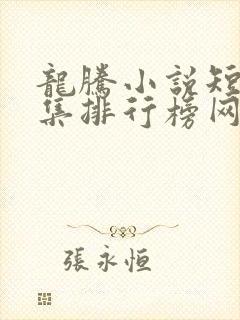 龍騰小說短
集排行榜网
張永恒